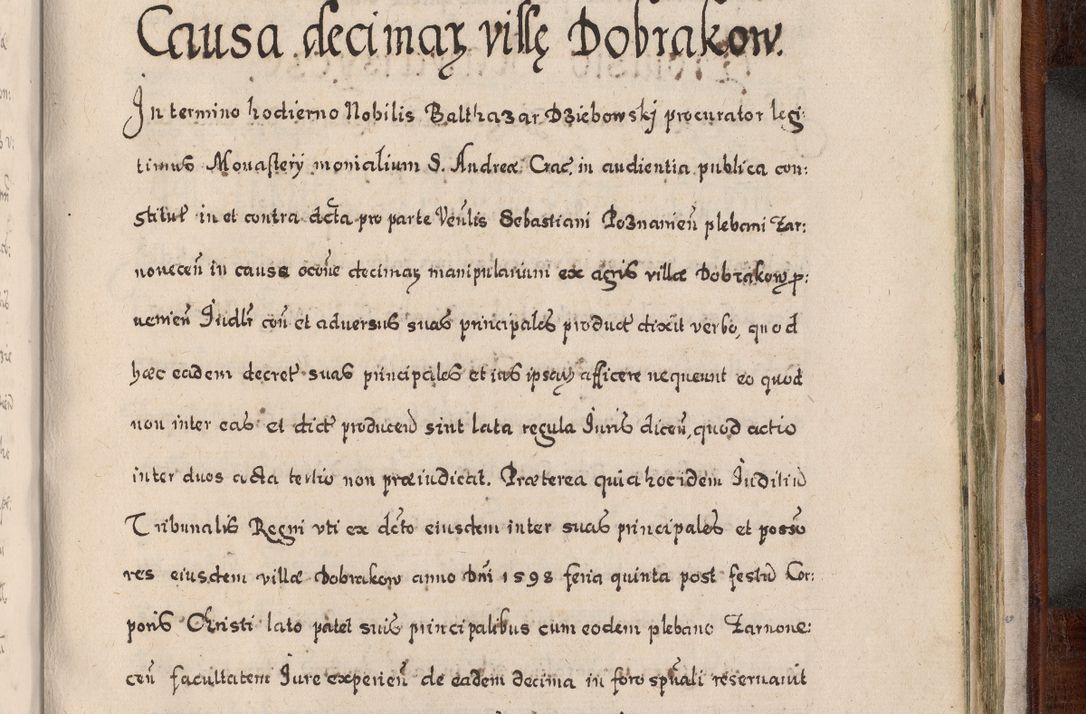 Causa decimaꝝ villę Dobrakow.
In termino hodierno Nobilis Balthazar Dziebowskj procurator legi:
timus Monasterÿ monialium S. Andreæ Crac̃, in audientia publica con:
stitut̃ in et contra dcta pro parte Ven̄lis Sebastiani Poznanien̄ plebani Zar:
novecen̄ in causa ocōne decimaꝝ manipularium ex agris villæ Dobrakow ꝓ:
uenien̄ Iudlr̄ con̄ et adversus suas principales product̃ dixit verbo, quod
hæc eadem decret̃ suas principales et ius ipsaꝝ afficere nequeunt eo quod
non inter eas et dict̃ producen̄ sint lata regula Iuris dicen̄, quod actio
inter duos acta tertio non præiudicat. Præterea quia hoc idem Iuditiū
Tribunalis Regni vti ex dc̄to eiusdem inter suas principales et posso
res eiusdem villæ Dobrakow anno Dn̄i 1598 feria quinta post festū Cor:
poris Christi lato patet suis principalibus cum eodem plebano Zarnone:
cen̄ facultatem Iure experien̄ de eadem decima in foro spūali reseruauit